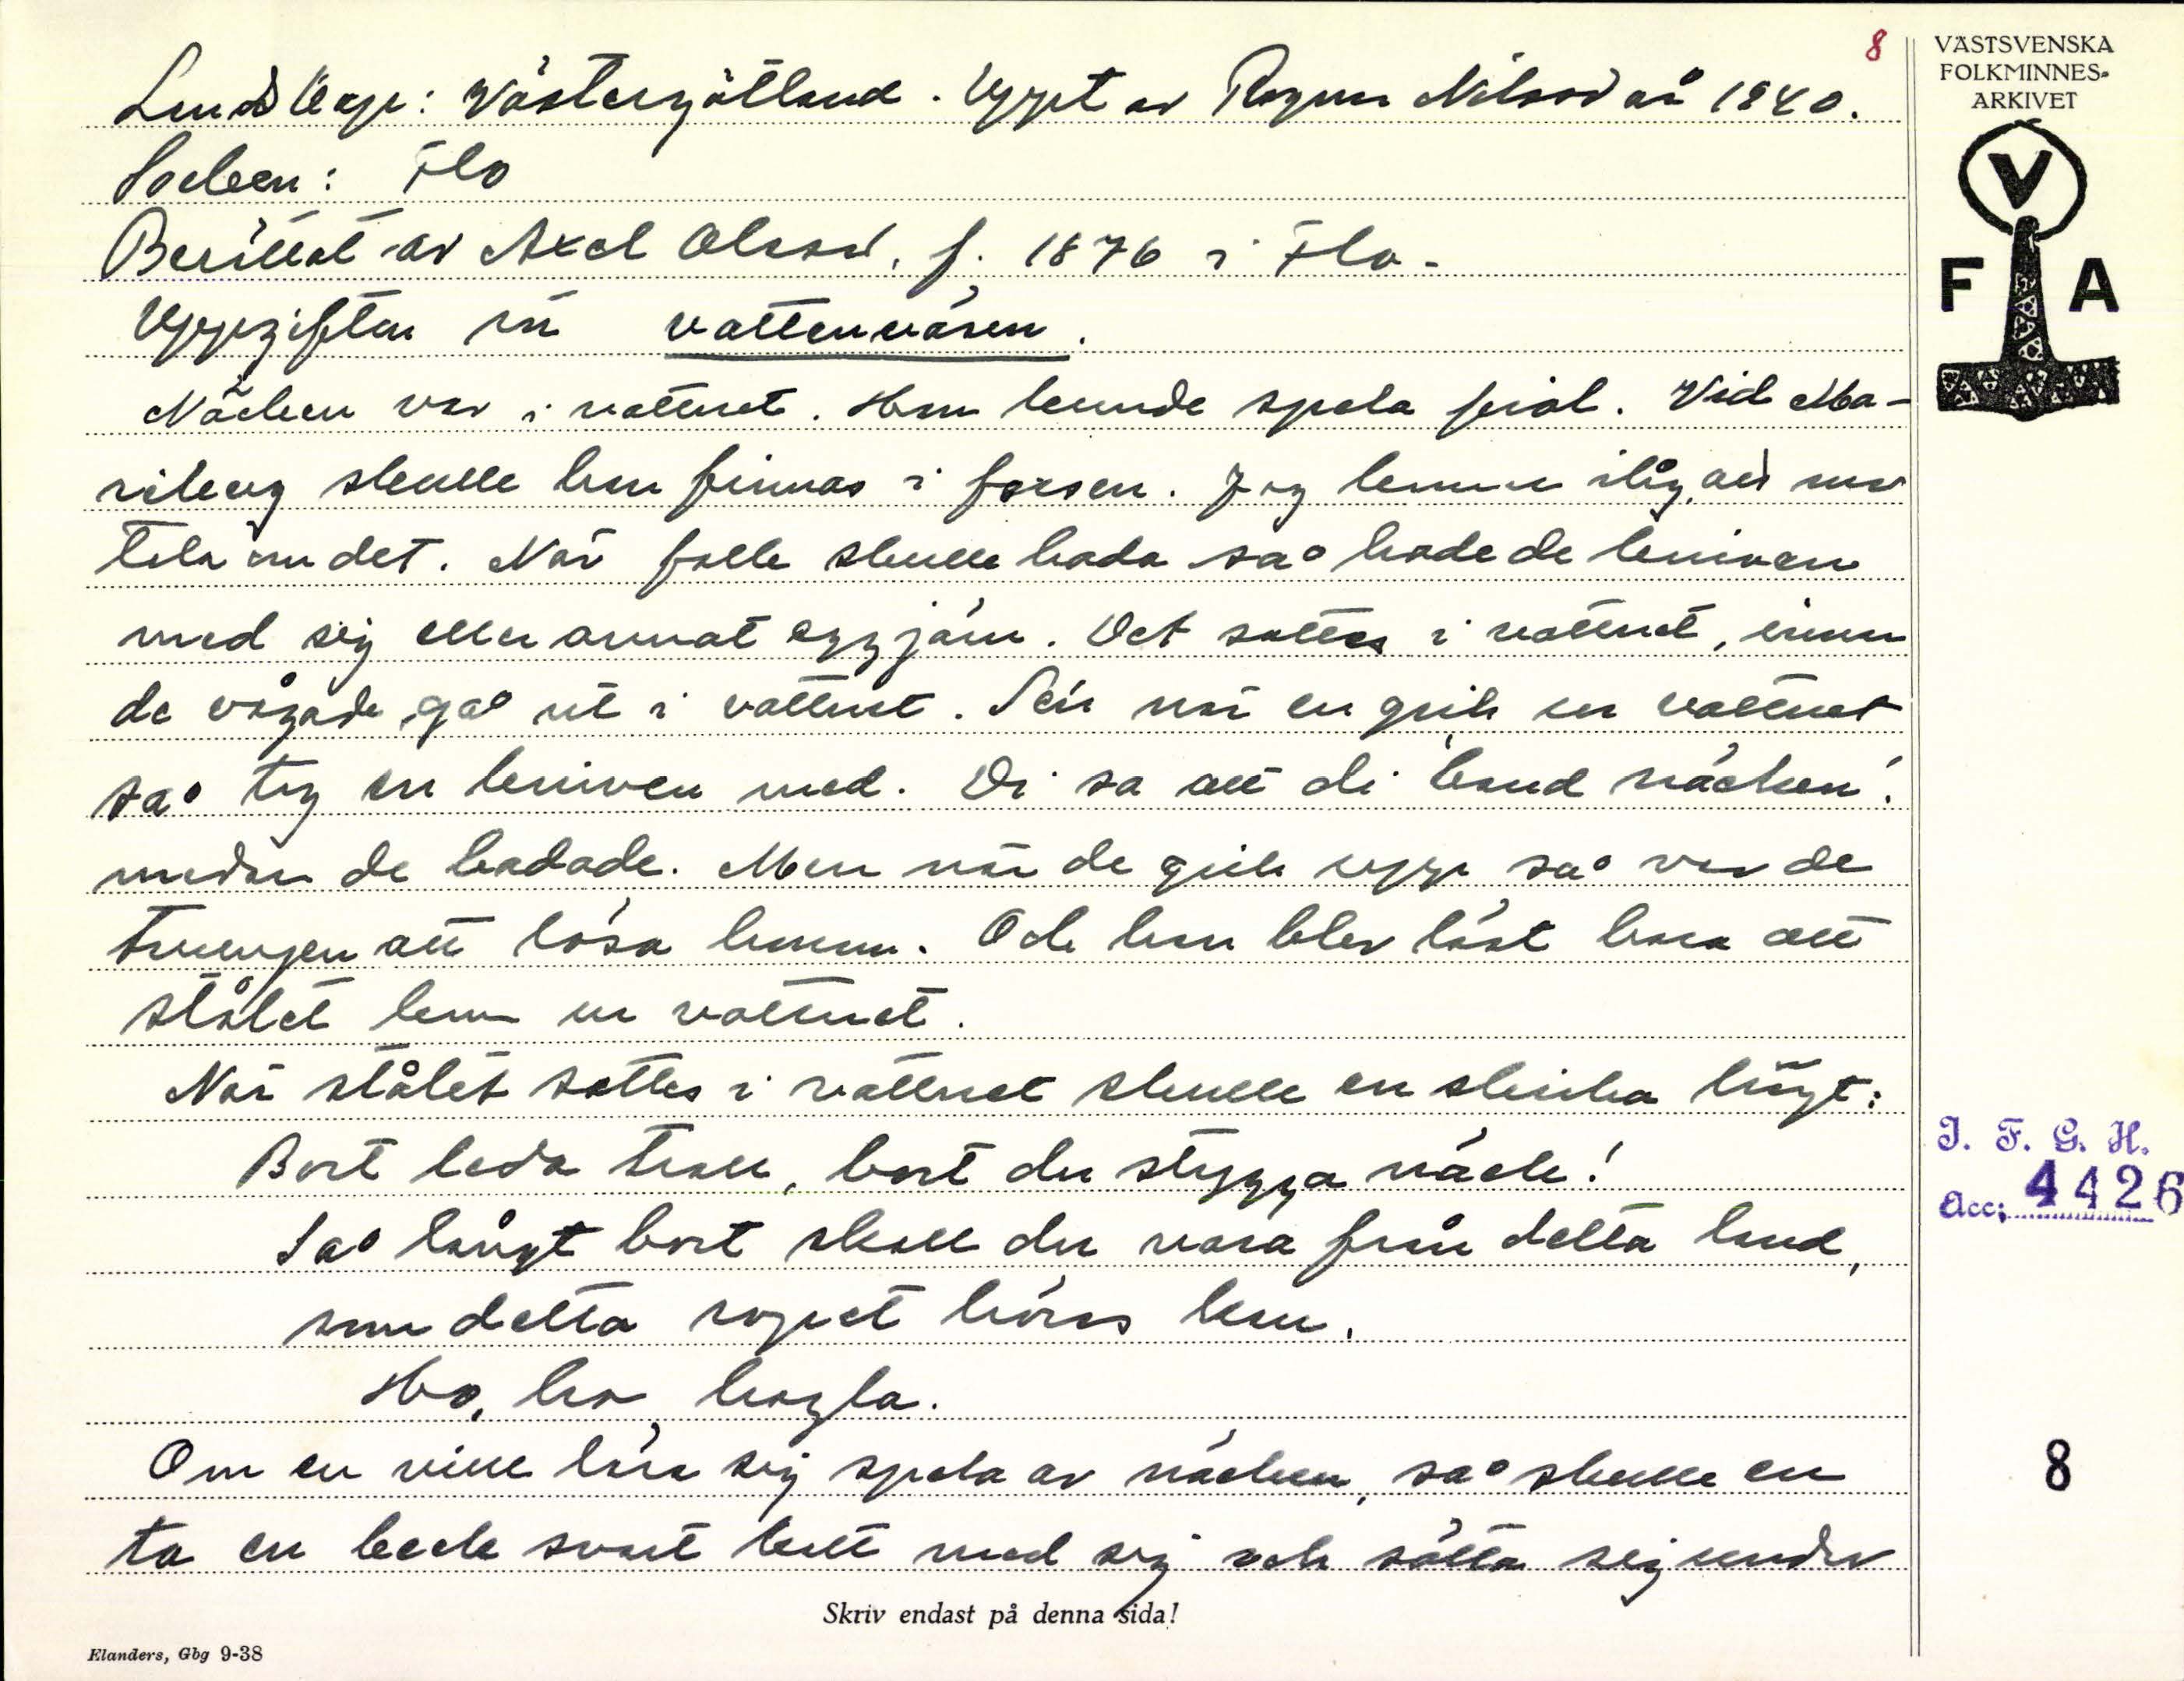 8
VÄSTSVENSKA
FOLKMINNES-
ARKIVET
V
F A
Landskap: Västergötland. Uppt av Ragnar Nilsson år 1940.
Socken: Flo
Berättat av Axel Olsson, f. 1876 i Flo.
Uppgifter om vattenväsen.
Näcken var i vattnet. Han kunde spela fiol. Vid Ma-
rieberg skulle han finnas i forsen. Jag kommer ihåg, att mor
tala om det. När folk skulle bada så hade de kniven
med sig eller annat eggjärn. Det sattes i vattnet, innan
de vågade gå ut i vattnet. Sen när en gick ur vattnet
så tog en kniven med. Di sa att di "band näcken"
medan de badade. Men när de gick upp så var de
tvungen att lösa honom. Och han blev löst bara att
stålet kom ur vattnet.
När stålet sattes i vattnet skulle en skrika högt:
Bort leda troll, bort du stygga näck!
Så långt bort skall du vara från detta land,
som detta ropet höras kan.
Ho, ho, hogla.
Om en ville lära sig spela av näcken, så skulle en
ta en beck svart katt med sig och sätta sig under
Skriv endast på denna sida!
Elanders, Gbg 9-38
I. F. G. H.
Acc: 4426
8